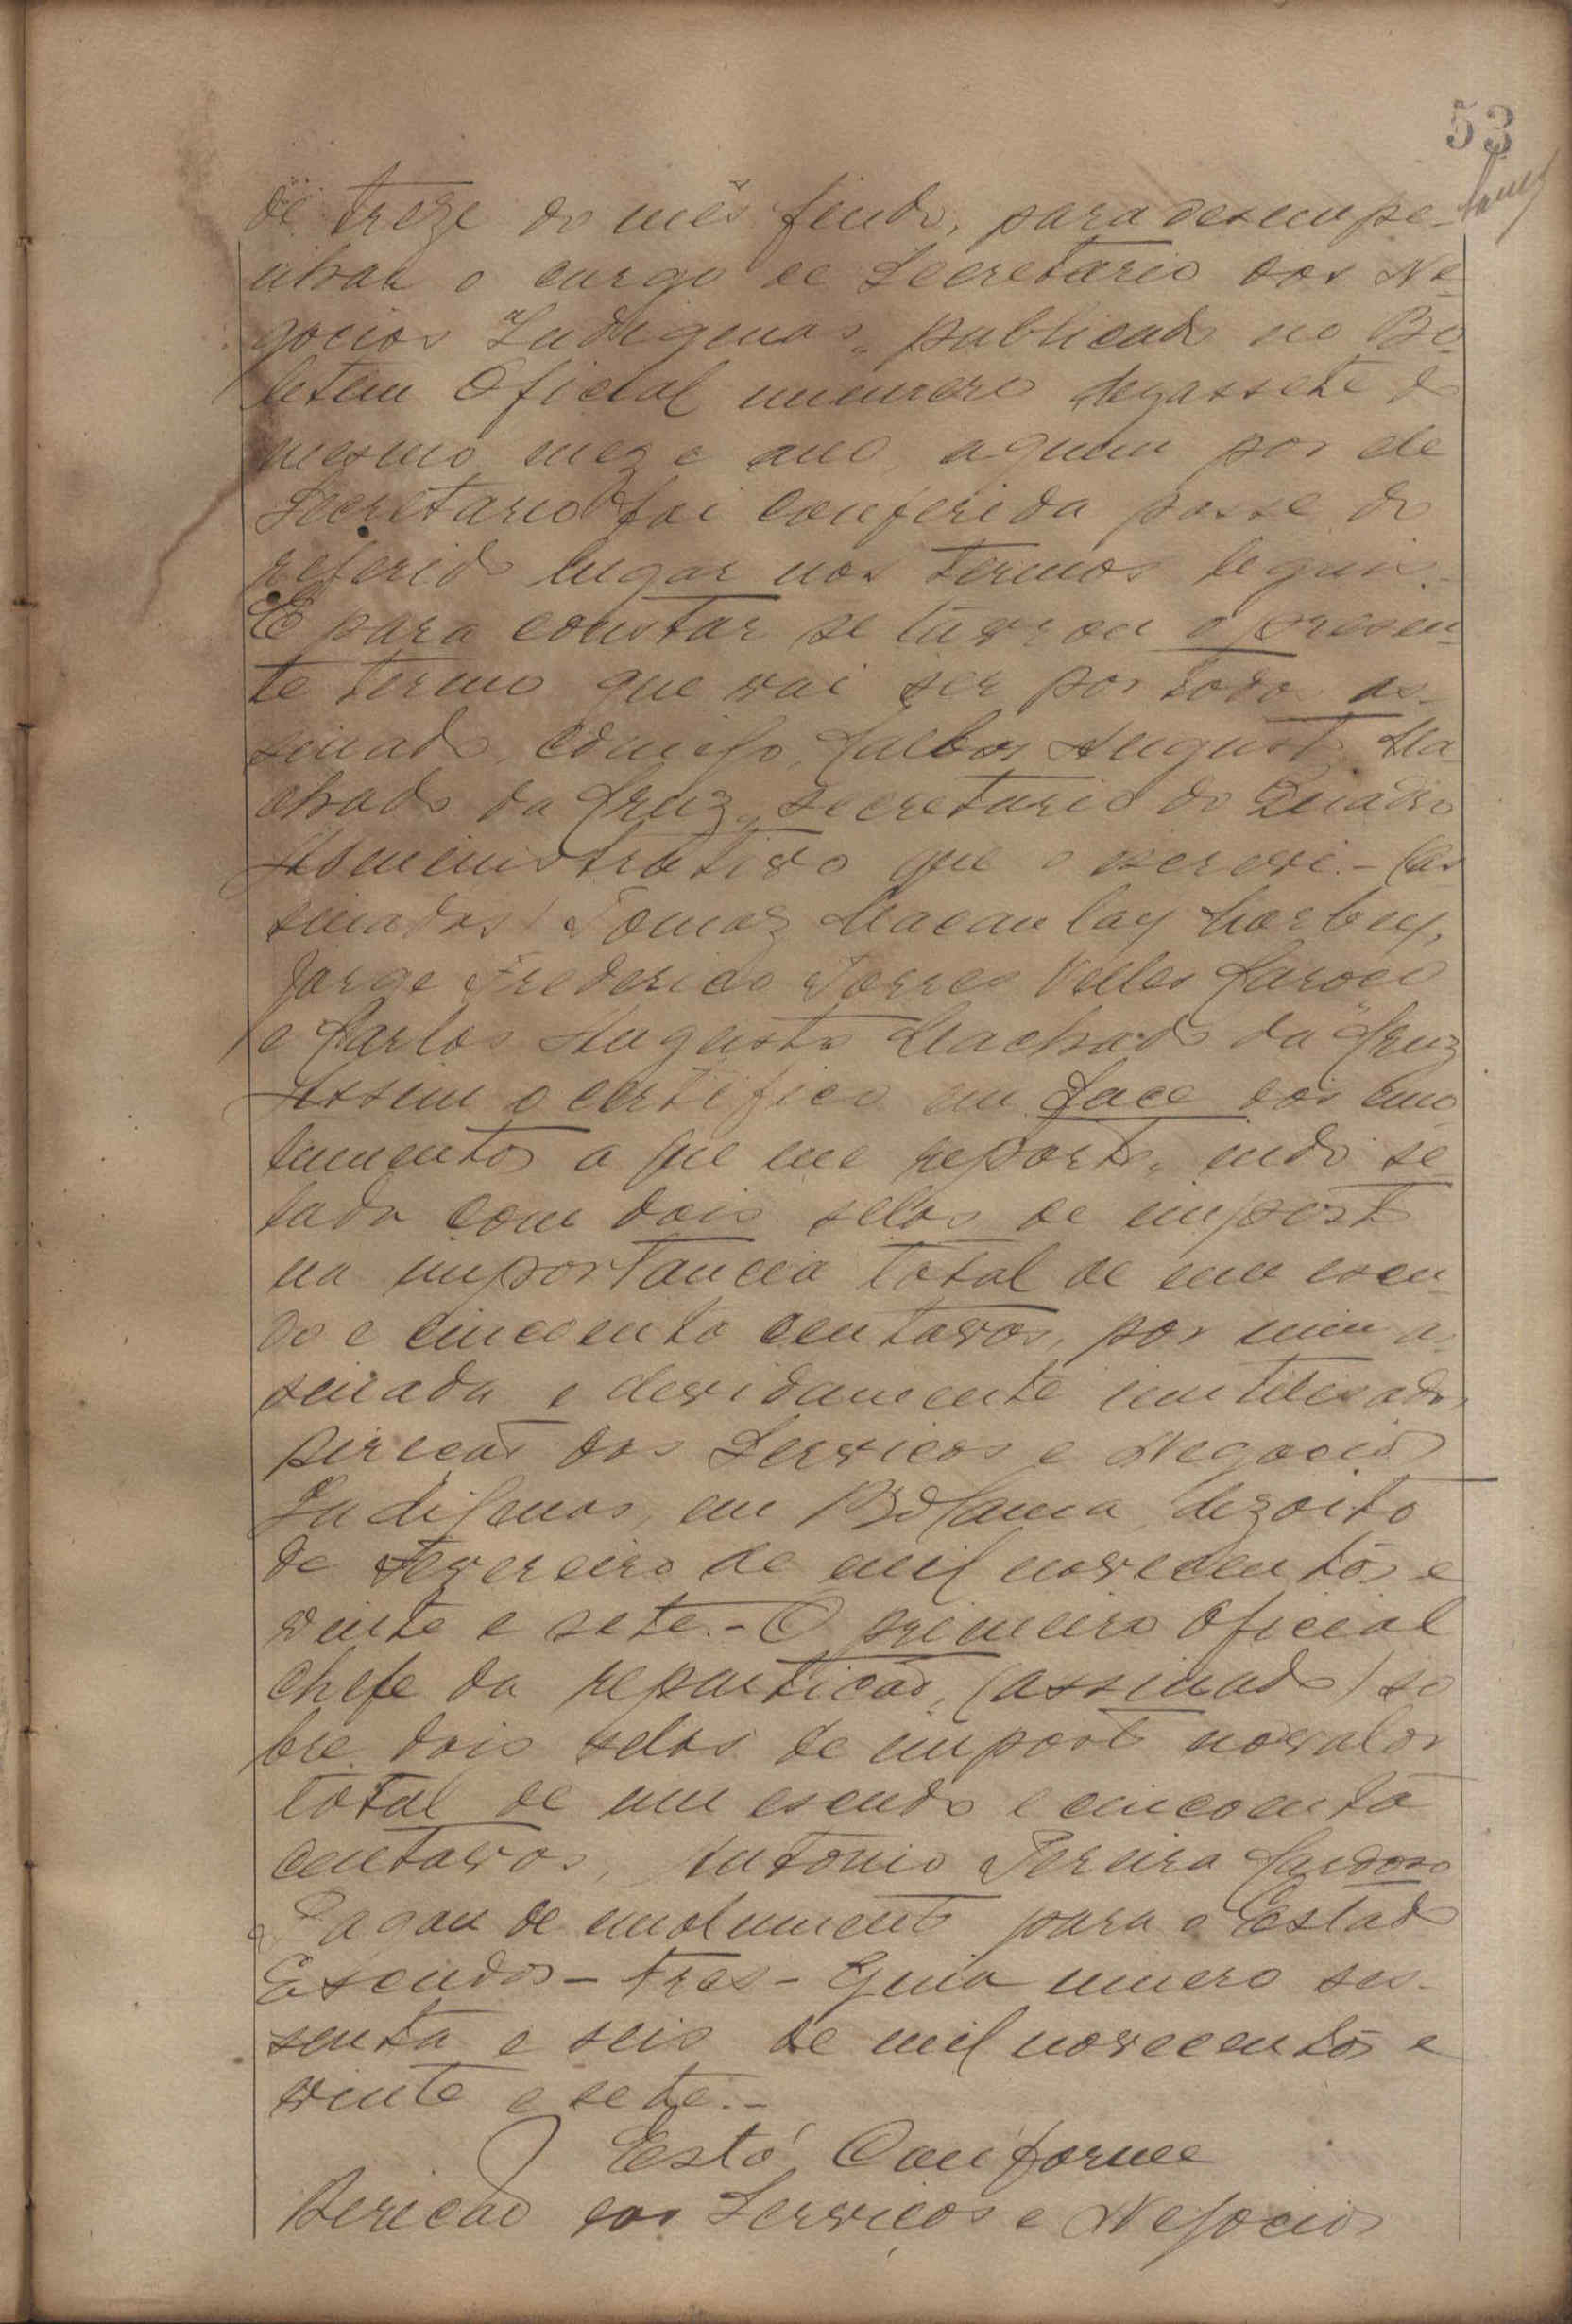 53
de treze do mês findo, para desempe-
nhar o cargo de Secretario dos Ne-
gocios Indigenas, publicado no Bo-
letim Oficial numero dezassete do
mesmo mez e ano, a quem por ele
Secretario foi conferida posse do
referido lugar nos termos legais.
E para constar se lavrou o presen-
te termo que vai ser por todos as-
sinado, comigo, Carlos Augusto Ma
chado da Cruz, secretario do Quadro
Administrativo que o escrevi. - (as
sinados) Tomaz Macaulay
Jorge Frederico Torres Velles Caroço
e Carlos Augusto Machado da Cruz
Assim o certifico em face dos
a que me reporto, indo se-
lada com dois selos de imposto
na importancia total de um escu-
do e cincoenta centavos, por mim as
sinada e devidamente inutilisados,
Direcão dos Servicos e Negocios
Indigenas, em Bolama, dezoito
de Fevereiro de mil novecentos e
vinte e sete. - O primeiro Oficial
chefe da reparticão, (assinado) so
bre dois selos de imposto no valor
total de um escudo e cincoenta
centavos, Antonio Pereira Cardoso
Pagou de emolumento para o Estado
Escudos - tres - Guia numero ses-
senta e seis de mil novecentos e
vinte e sete. -
Está Conforme
Direcão dos Serviços e Negocios